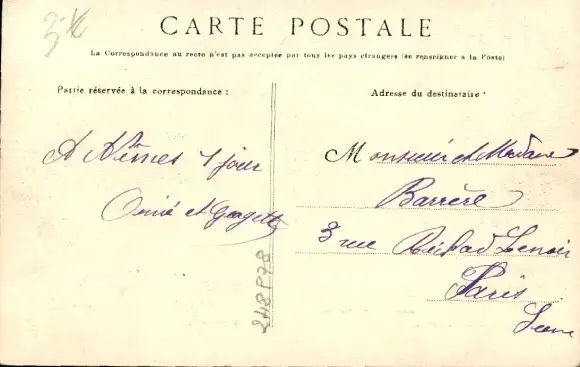 CARTE POSTALE
La Correspondance au recto n'est pas acceptée par tous les pays étrangers (se renseigner à la Poste)
Partie réservée à la correspondance :
A Nîmes 1 jour
et
248P78
Adresse du destinataire :
Monsieur et Madame
Barrère
3 rue Richard Lenoir
Paris